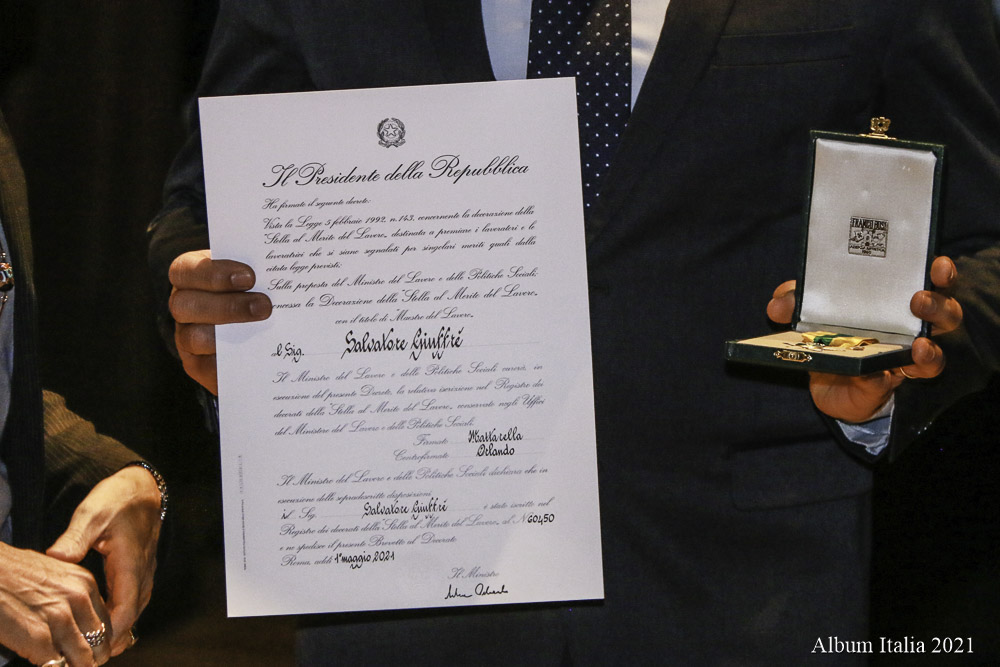 Il Presidente della Repubblica
Ha firmato il seguente decreto:
Vista la Legge 5 febbraio 1992, n. 143, concernente la decorazione della
"Stella al Merito del Lavoro" destinata a premiare i lavoratori e le
lavoratrici che si siano segnalati per singolari meriti quali dalla
citata legge previsti;
Sulla proposta del Ministro del Lavoro e delle Politiche Sociali;
concessa la Decorazione della "Stella al Merito del Lavoro"
con il titolo di "Maestro del Lavoro"
al Sig. Salvatore Giuffrè
Il Ministro del Lavoro e delle Politiche Sociali curerà, in
esecuzione del presente Decreto, la relativa iscrizione nel Registro dei
decorati della "Stella al Merito del Lavoro" conservato negli Uffici
del Ministero del Lavoro e delle Politiche Sociali.
Firmato Mattarella
Controfirmato Orlando
Il Ministro del Lavoro e delle Politiche Sociali dichiara che in
esecuzione delle sopradescritte disposizioni
il Sig. Salvatore Giuffrè è stato iscritto nel
Registro dei decorati della "Stella al Merito del Lavoro" al N° 60450
e ne spedisce il presente Brevetto al Decorato
Roma, addì 1° maggio 2021
Il Ministro
Album Italia 2021